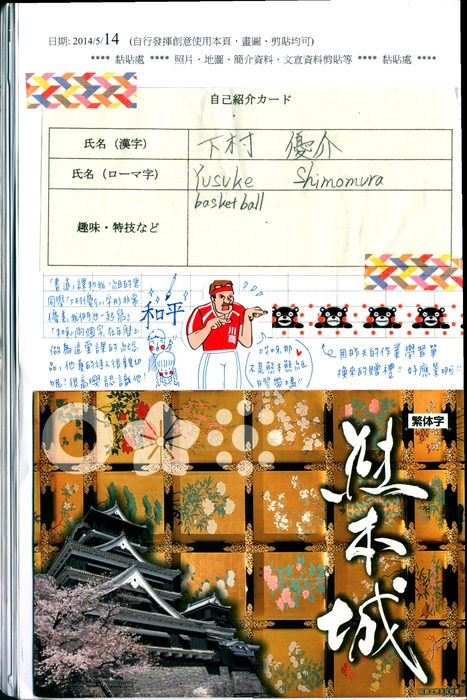 日期: 2014/5/14 (自行發揮創意使用本頁，畫圖、剪貼均可)
**** 黏貼處 **** 照片、地圖、簡介資料、文宣資料剪貼等 **** 黏貼處 ****
自己紹介カード
氏名（漢字） 下村 優介
氏名（ローマ字） Yusuke Shimomura
趣味・特技など basketball
「書道」課和我一組的男
同學「下村優介」，字形非常
優美，我們倆一起寫
「和平」兩個字，在左側上
做為這堂課的
品，他真的待人很親切
呢！很高興認識他！
和平
川商
哎呀那
不是熊本熊紙
膠帶嗎!!
用昨天的作業學習單
換來的贈禮 好應景啊!!
繁体字
熊本城